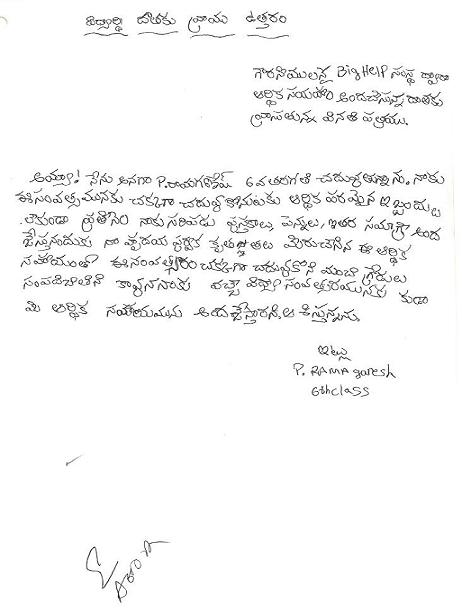 విద్యార్థి దాతకు వ్రాయు ఉత్తరం
గౌరవనీయులైన BigHELP సంస్థ ద్వారా
ఆర్థిక సహాయం అందచేసున్న దాతకు
వ్రాసుతున్న వినతి పత్రము.
అయ్యా! నేను అనగా P.రామగణేష్ 6వ తరగతి చదువుతున్నాను. నాకు
ఈ సంవత్సమునకు చక్కగా చదువుకోవుటకు ఆర్థిక పరమైన ఇబ్బందు
లేకుండా ప్రతినెల నాకు సరిపడు పుస్తకాలు, పెన్నులు, ఇతర సమాగ్రి అంద
జేస్తునందుకు నా హృదయ పూర్వక కృతజ్ఞతలు మీరుచేసిన ఈ ఆర్థిక
సహాయంతో ఈ సంవత్సరం చక్కగా చదువుకొని మంచి గ్రేడులు
సంపాదించాలని కావున నాకు వచ్చే విద్యా సంవత్సరమునకు కుడా
మీ ఆర్థిక సహాయమును అందజేస్తారని ఆశిస్తున్నాను.
ఇట్లు
P. RAMA ganesh
6th class